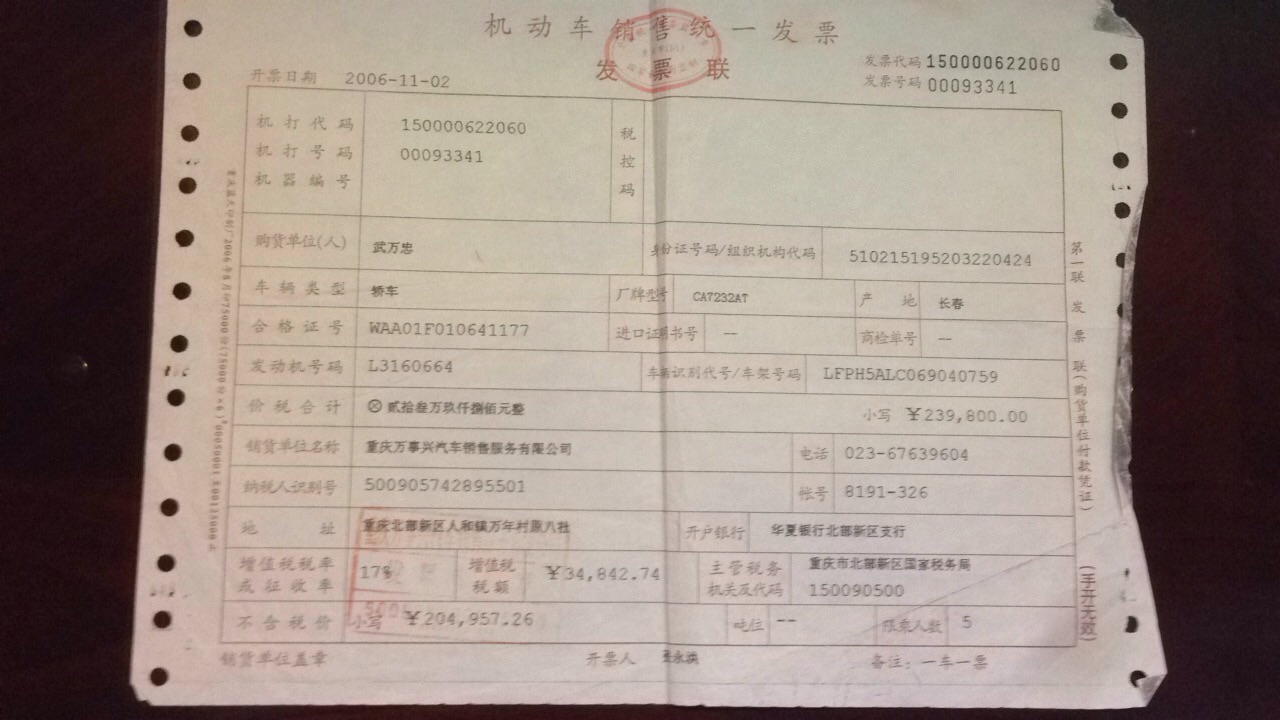 机动车销售统一发票
发票联
发票代码 150000622060
发票号码 00093341
开票日期 2006-11-02
机打代码 150000622060
机打号码 00093341
机器编号
税控码
购货单位(人) 武万忠 身份证号码/组织机构代码 510215195203220424
车辆类型 轿车 厂牌型号 CA7232AT 产地 长春
合格证号 WAA01F010641177 进口证明书号 -- 商检单号 --
发动机号码 L3160664 车辆识别代号/车架号码 LFPH5ALC069040759
价税合计 ⊗贰拾叁万玖仟捌佰元整 小写 ¥239,800.00
销货单位名称 重庆万事兴汽车销售服务有限公司 电话 023-67639604
纳税人识别号 500905742895501 帐号 8191-326
地址 重庆北部新区人和镇万年村原八社 开户银行 华夏银行北部新区支行
增值税税率或征收率 17% 增值税税额 ¥34,842.74 主管税务机关及代码 重庆市北部新区国家税务局
150090500
不含税价 小写 ¥204,957.26 吨位 -- 限乘人数 5
销货单位盖章 开票人 备注：一车一票
第一联 发票联(购货单位付款凭证)
(手开无效)